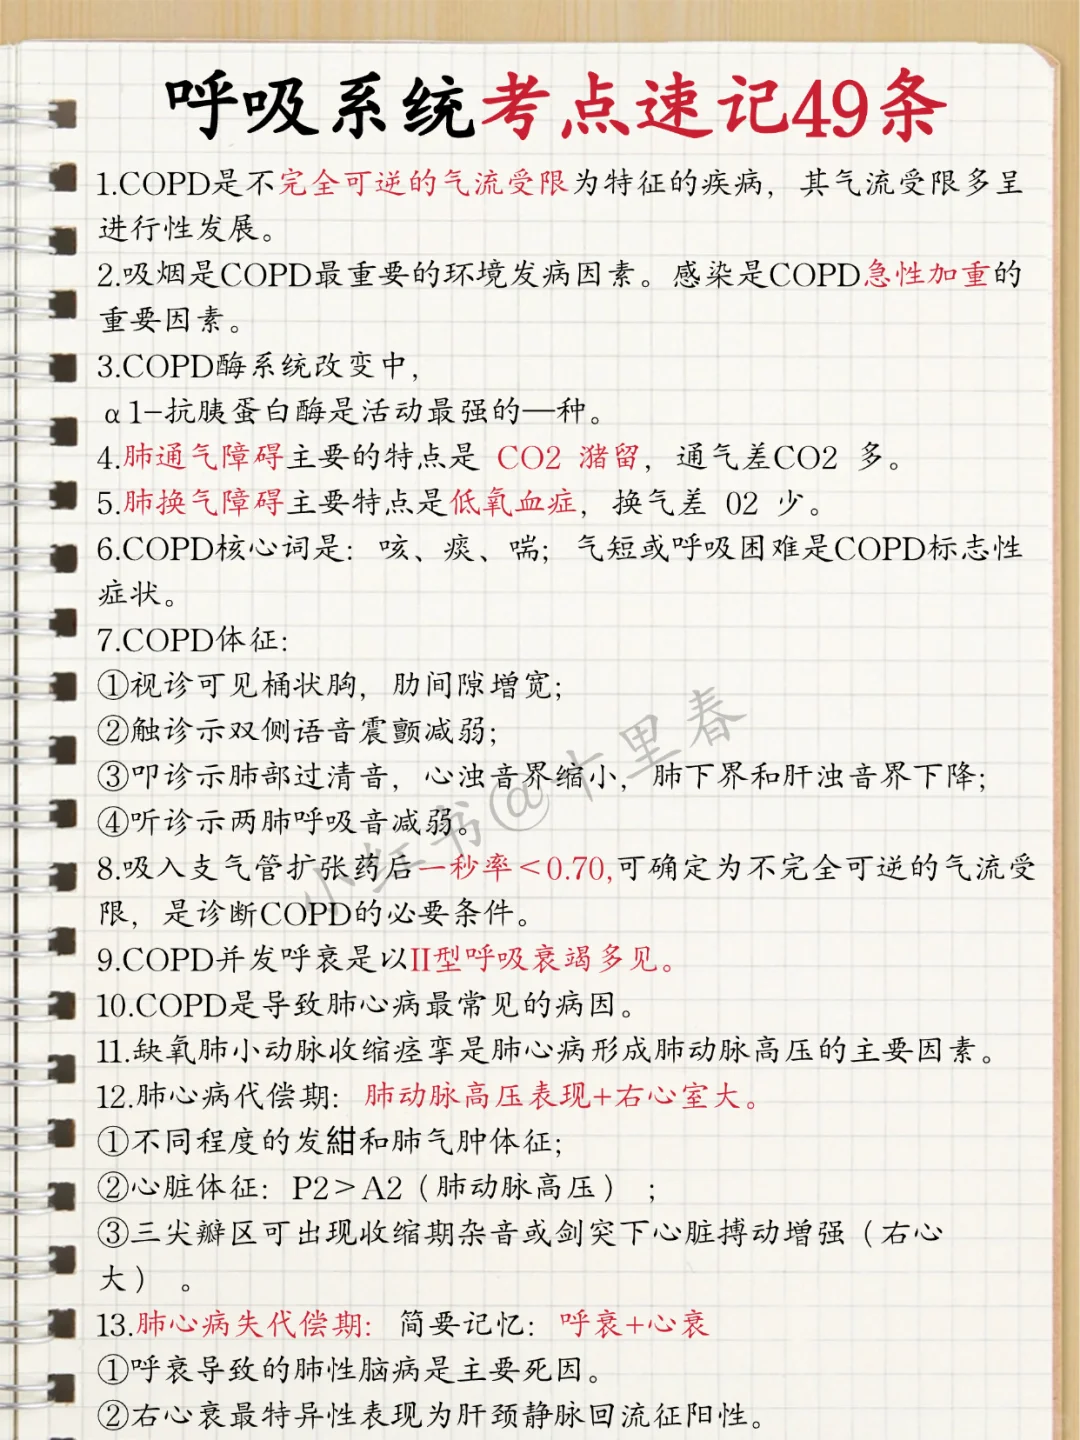 呼吸系统考点速记49条
1.COPD是不完全可逆的气流受限为特征的疾病，其气流受限多呈
进行性发展。
2.吸烟是COPD最重要的环境发病因素。感染是COPD急性加重的
重要因素。
3.COPD酶系统改变中，
α1-抗胰蛋白酶是活动最强的—种。
4.肺通气障碍主要的特点是 CO2 潴留，通气差CO2 多。
5.肺换气障碍主要特点是低氧血症，换气差 02 少。
6.COPD核心词是：咳、痰、喘；气短或呼吸困难是COPD标志性
症状。
7.COPD体征：
①视诊可见桶状胸，肋间隙增宽；
②触诊示双侧语音震颤减弱；
③叩诊示肺部过清音，心浊音界缩小，肺下界和肝浊音界下降；
④听诊示两肺呼吸音减弱。
8.吸入支气管扩张药后一秒率＜0.70,可确定为不完全可逆的气流受
限，是诊断COPD的必要条件。
9.COPD并发呼衰是以II型呼吸衰竭多见。
10.COPD是导致肺心病最常见的病因。
11.缺氧肺小动脉收缩痉挛是肺心病形成肺动脉高压的主要因素。
12.肺心病代偿期：肺动脉高压表现+右心室大。
①不同程度的发紺和肺气肿体征；
②心脏体征：P2＞A2（肺动脉高压）；
③三尖瓣区可出现收缩期杂音或剑突下心脏搏动增强（右心
大）。
13.肺心病失代偿期：简要记忆：呼衰+心衰
①呼衰导致的肺性脑病是主要死因。
②右心衰最特异性表现为肝颈静脉回流征阳性。
小红书@十里春